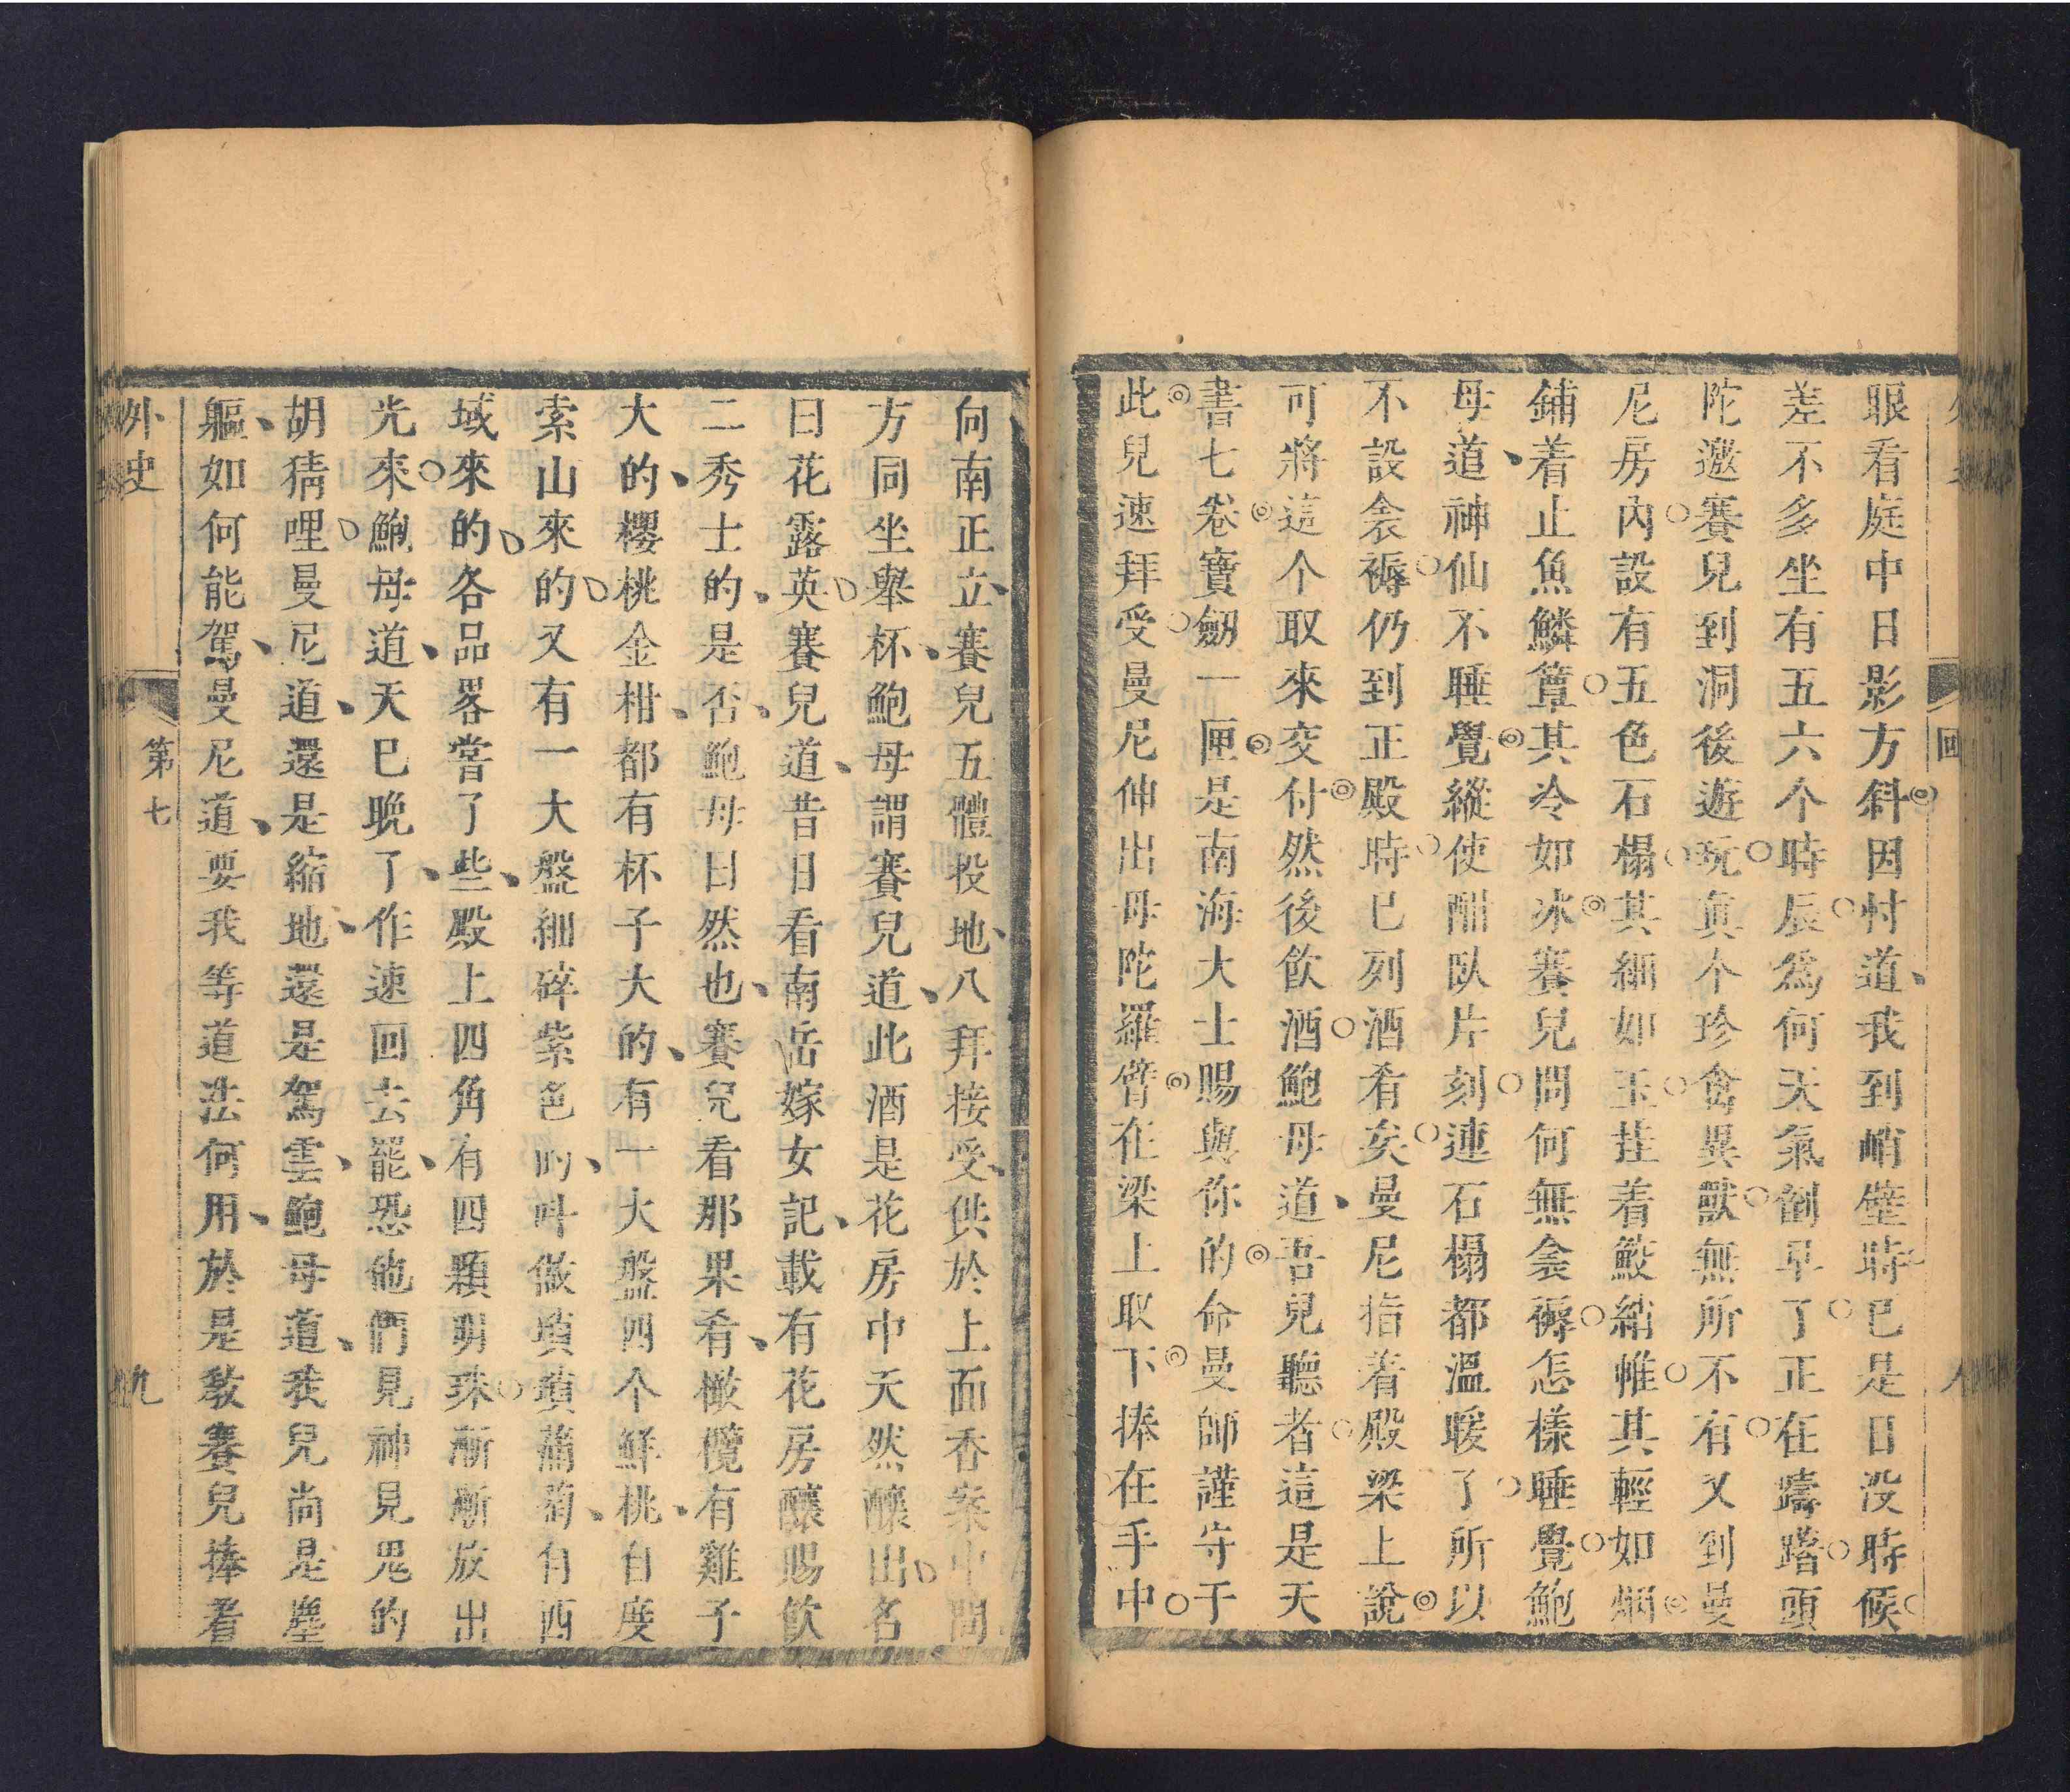 眼看庭中日影方斜因忖道我到峭壁時已是日没時候
差不多坐有五六个時辰爲何天氣倒早了正在躊躇頭
陀邀賽兒到洞後遊玩眞个珍禽異獸無所不有又到曼
尼房內設有五色石榻其細如玉挂着鮫綃帷其輕如烟
鋪着止魚鱗簟其冷如冰賽兒問何無衾褥怎樣睡覺鮑
母道神仙不睡覺縱使酣臥片刻連石榻都溫暖了所以
不設衾褥仍到正殿時已列酒肴矣曼尼指着殿梁上說
可將這个取來交付然後飲酒鮑母道吾兒聽者這是天
書七卷寶劒一匣是南海大士賜與你的命曼師謹守于
此兒速拜受曼尼伸出母陀羅臂在梁上取下捧在手中
向南正立賽兒五體投地八拜接受供於上面香案中間
方同坐舉杯鮑母謂賽兒道此酒是花房中天然釀出名
曰花露英賽兒道昔日看南岳嫁女記載有花房釀賜飮
二秀士的是否鮑母曰然也賽兒看那果肴橄欖有雞子
大的櫻桃金柑都有杯子大的有一大盤四个鮮桃自度
索山來的又有一大盤細碎紫色的呌做瑣瑣蒲萄自西
域來的各品畧嘗了些殿上四角有四顆明珠漸漸放出
光來鮑母道天已晚了作速回去罷恐他們見神見鬼的
胡猜哩曼尼道還是縮地還是駕雲鮑母道我兒尚是塵
軀如何能駕曼尼道要我等道法何用於是敎賽兒捧着
外史
第七
九